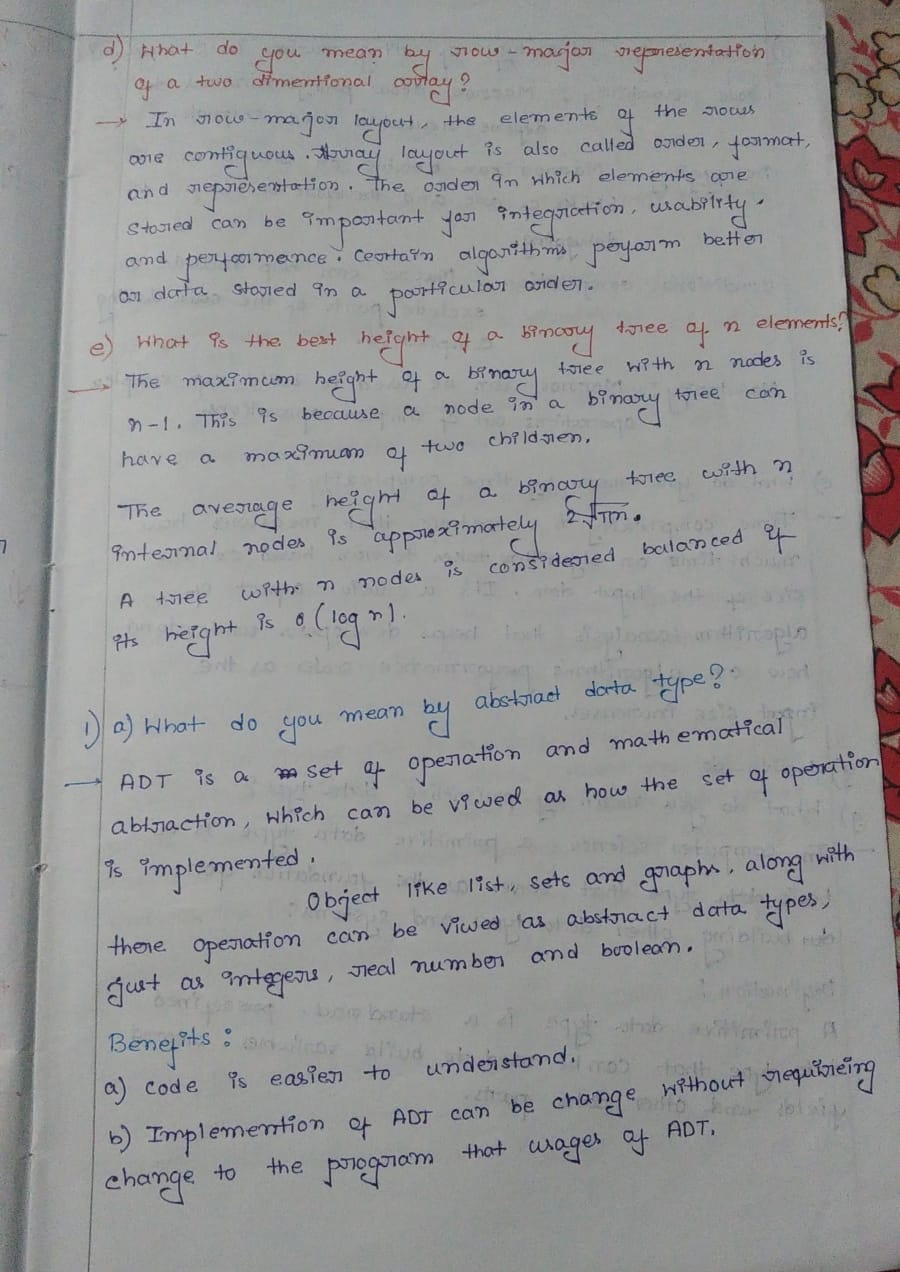 d) What do you mean by row-marjor representation
of a two dimentional array?
→ In row-major layout, the elements of the rows
are contiguous. Array layout is also called order, format,
and representation. The order in which elements are
stored can be important for integration, usability.
and performance. Certain algorithms perform better
on data stored in a particular order.
e) What is the best height of a binary tree of n elements?
→ The maximum height of a binary tree with n nodes is
n-1. This is because a node in a binary tree can
have a maximum of two children.
The average height of a binary tree with n
internal nodes is approximately 2√πn.
A tree with n nodes is considered balanced if
its height is o(log n).
1) a) What do you mean by abstract data type?
→ ADT is a set of operation and mathematical
abtraction, which can be viwed as how the set of operation
is implemented.
Object like list, sets and graphs, along with
there operation can be viwed as abstract data types,
just as integers, real number and boolean.
Benefits:
a) code is easier to understand.
b) Implemention of ADT can be change without requireing
change to the program that usages of ADT.